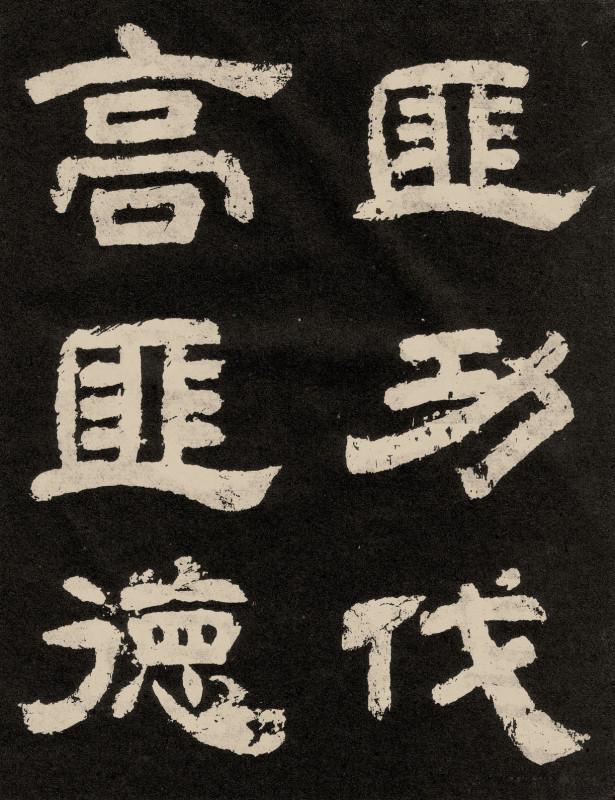 匪功伐
高匪德